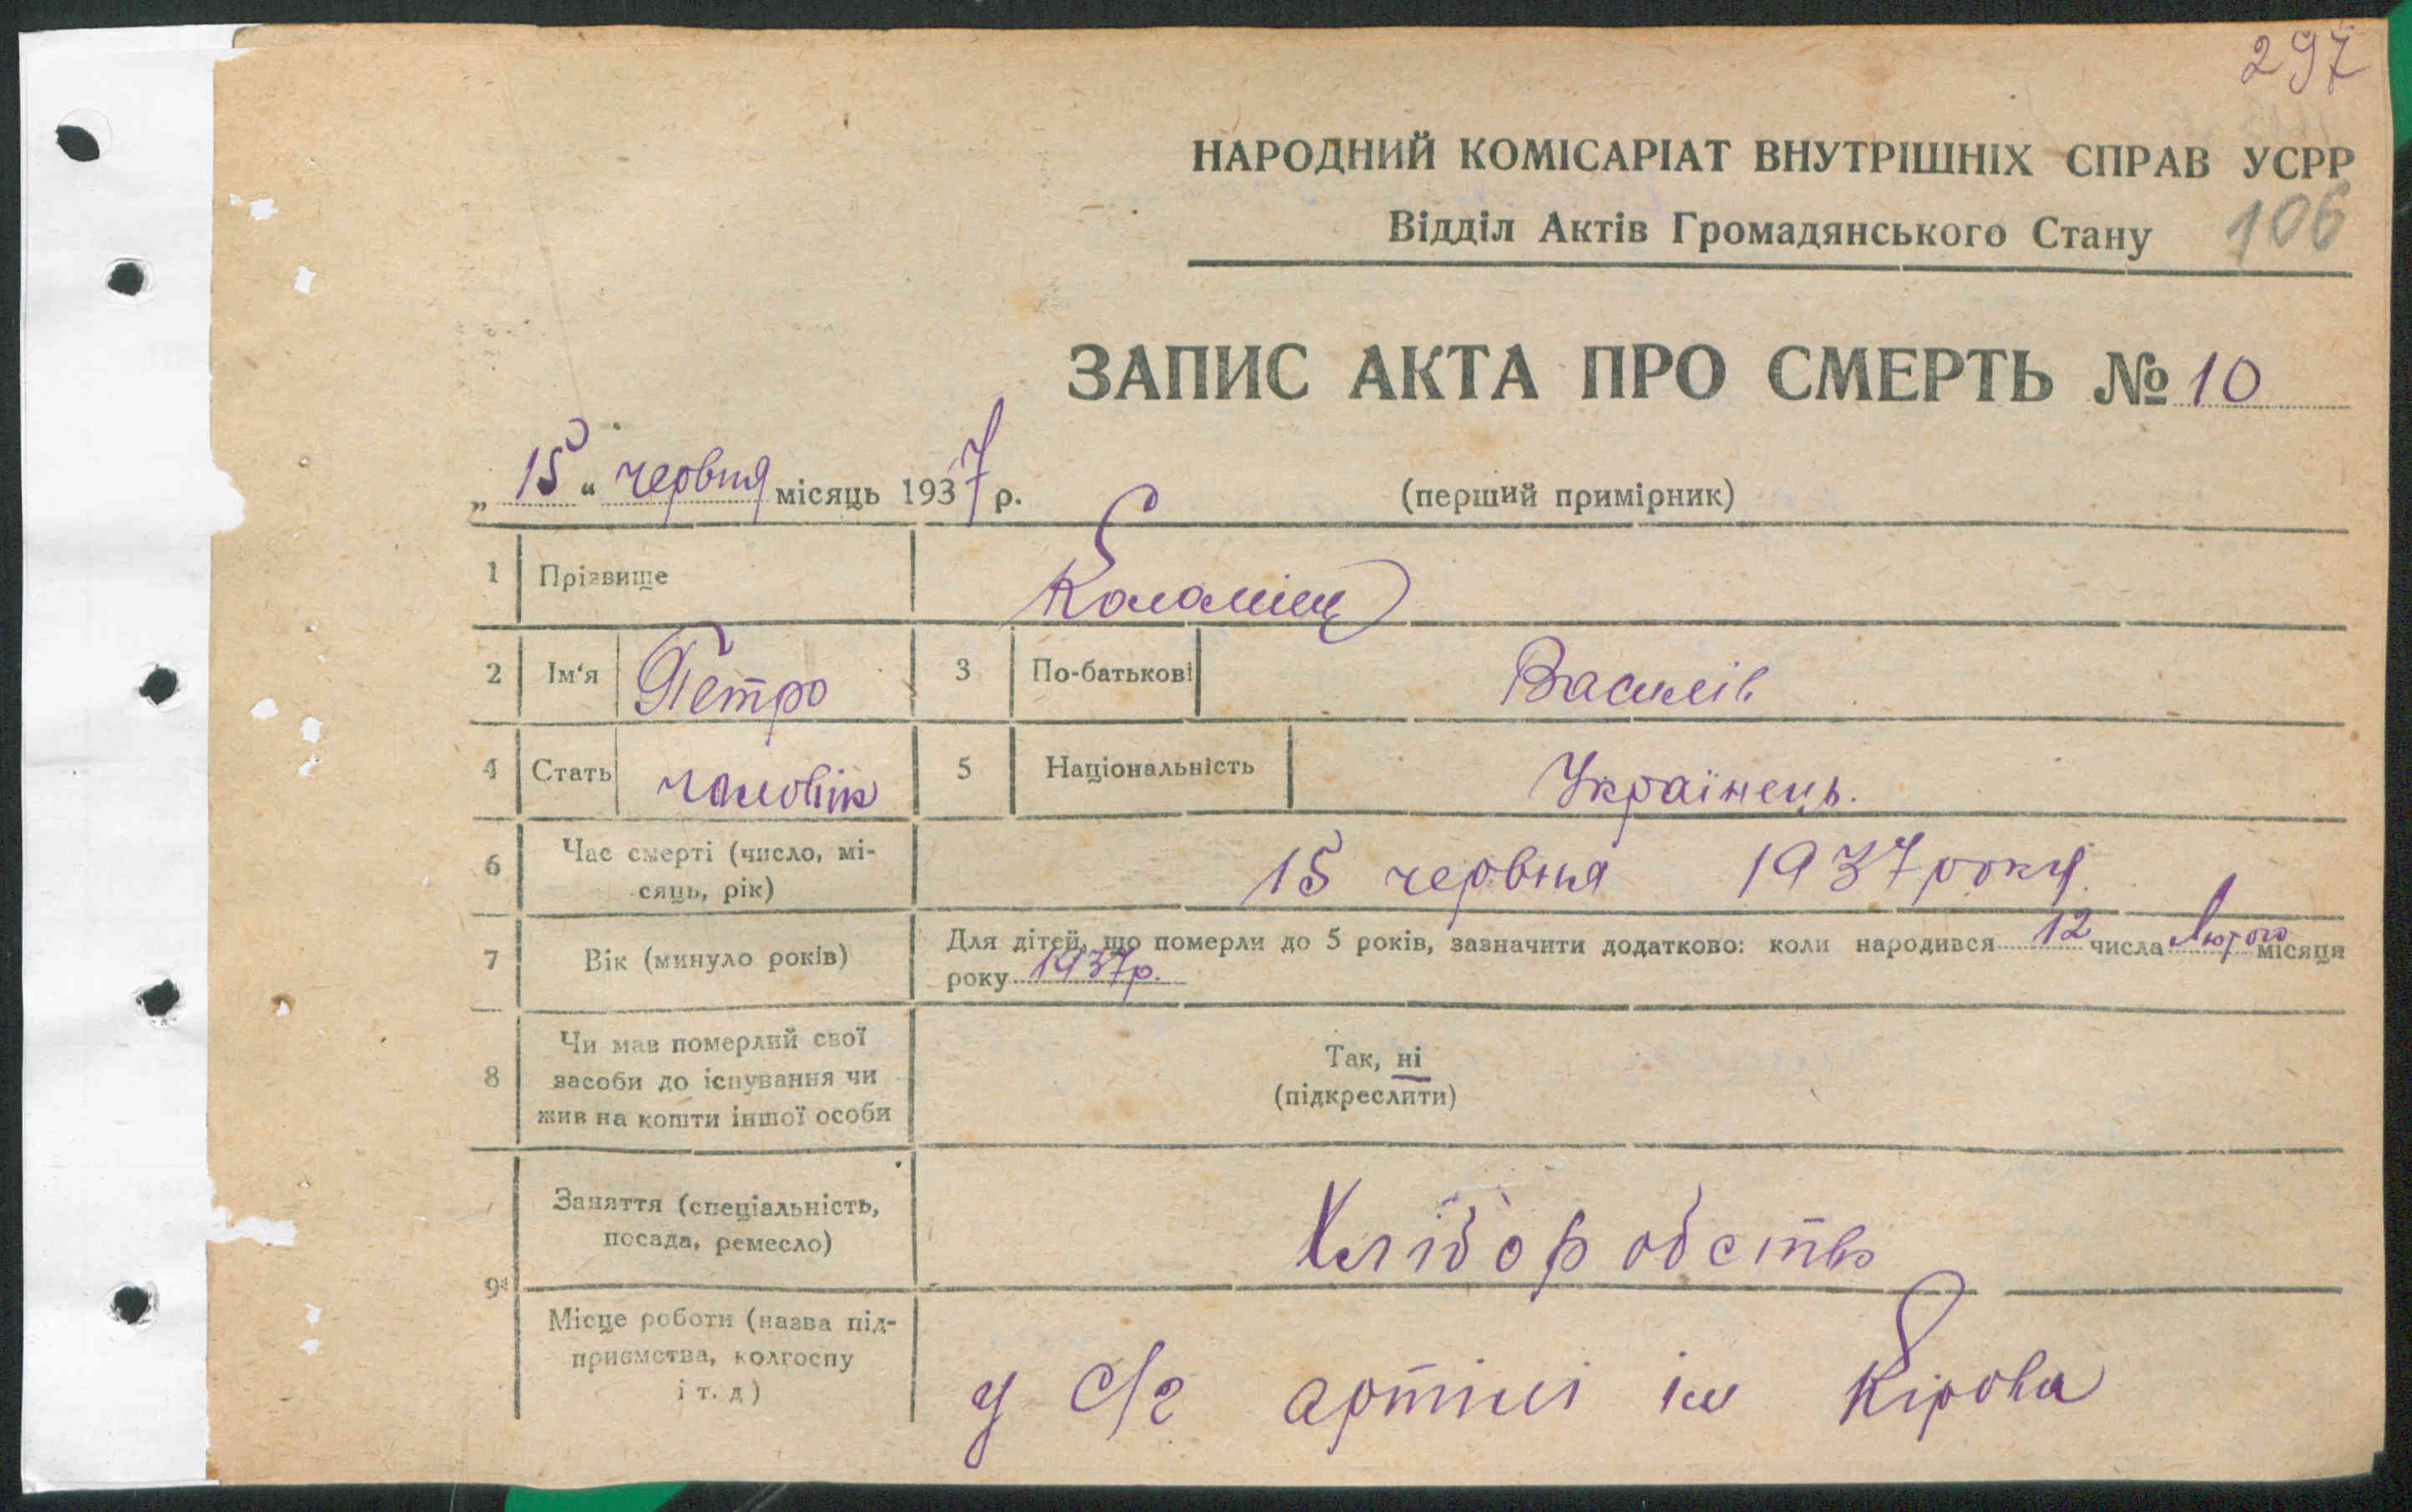 297
НАРОДНИЙ КОМІСАРІАТ ВНУТРІШНІХ СПРАВ УСРР
Відділ Актів Громадянського Стану 106
ЗАПИС АКТА ПРО СМЕРТЬ № 10
„ 15 “ червня місяць 1937 р. (перший примірник)
1 Прізвище Коломієць
2 Ім'я Петро 3 По-батькові Василів
4 Стать чоловік 5 Національність Українець.
6 Час смерті (число, мі-
сяць, рік) 15 червня 1937 року.
7 Вік (минуло років) Для дітей, що померли до 5 років, зазначити додатково: коли народився 12 числа Лютого місяця
року 1937р.
8 Чи мав померлий свої
засоби до існування чи
жив на кошти іншої особи
Так, ні
(підкреслити)
9 Заняття (спеціальність,
посада, ремесло) Хліборобство
Місце роботи (назва під-
приємства, колгоспу
і т. д) у с/г артілі ім Кірова